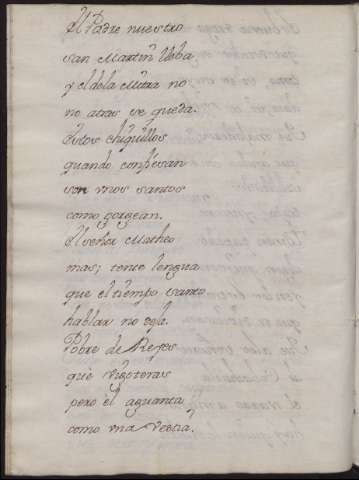 El Padre nuestro
san Martin lleba
y el dela Mitra no
no atras se queda.
Estos chiquillos
quando confiesan
son vnos santos
como gorgean.
El señor Matheo
mas; tente lengua
que el tiempo santo
hablar no deje.
Pobre de Reyes
què
pero èl aguanta
como vna